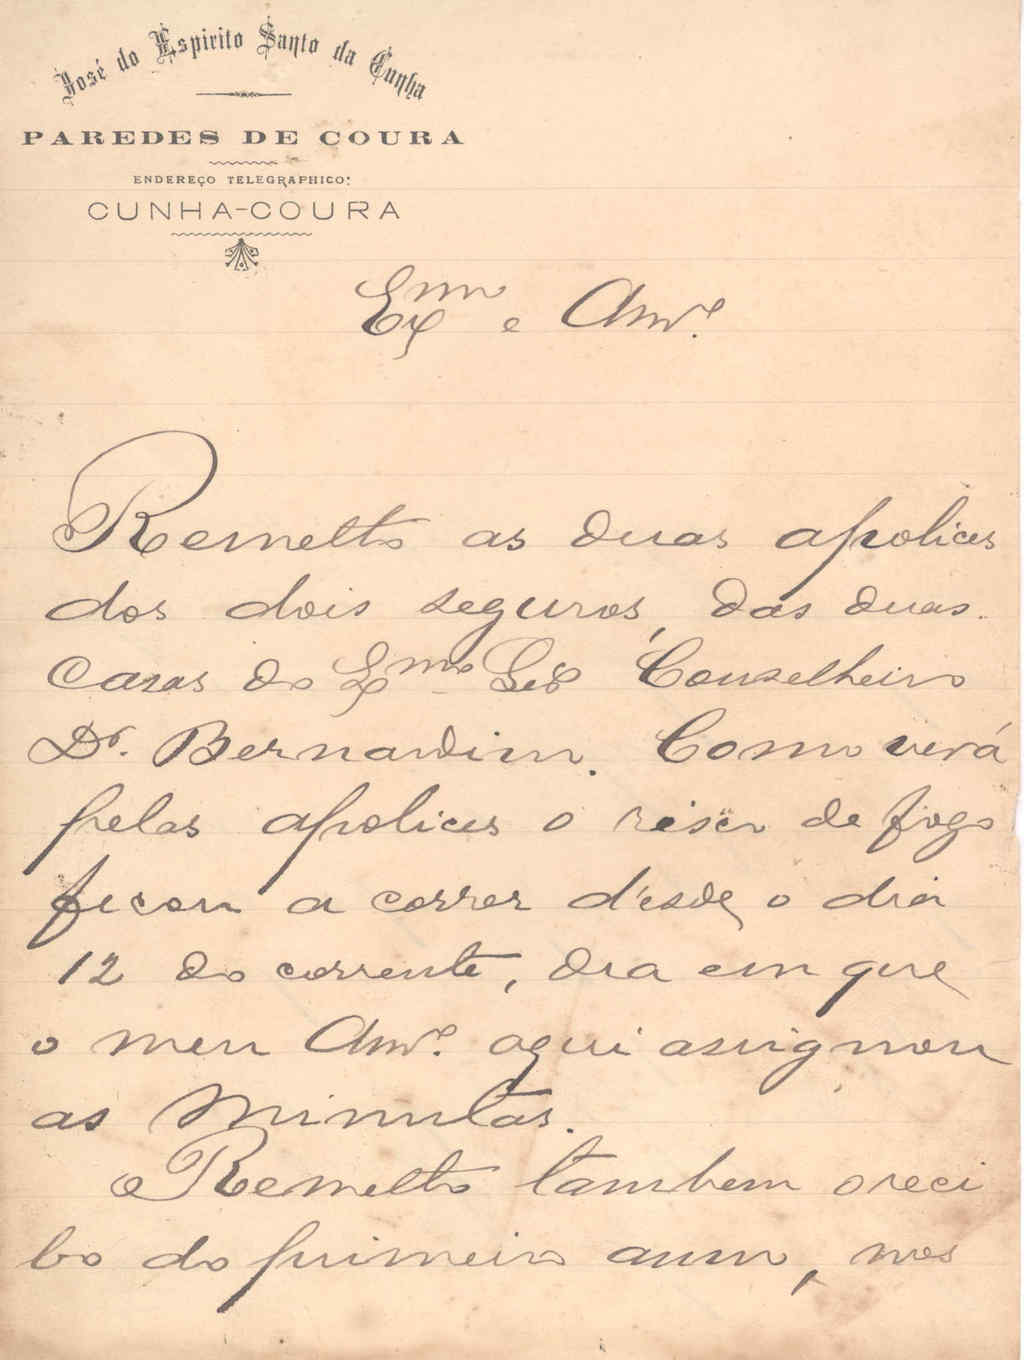 José do Espirito Santo da Cunha
PAREDES DE COURA
ENDEREÇO TELEGRAPHICO:
CUNHA-COURA
Exmo e Amo.
Remetto as duas apolices
dos dois seguros, das duas
Casas do Exmo Snr Conselheiro
Dr. Bernardim. Como verá
pelas apolices o risco de fogo
ficou a correr désde o dia
12 do corrente, dia em que
o meu Amo. aqui assignou
as Minutas.
Remetto tambem o reci
bo do primeiro anno, nos